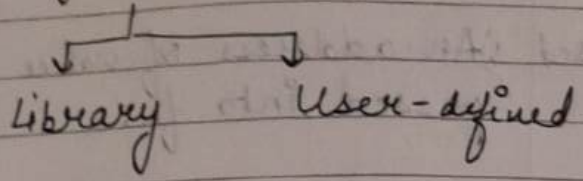 Library User-defined